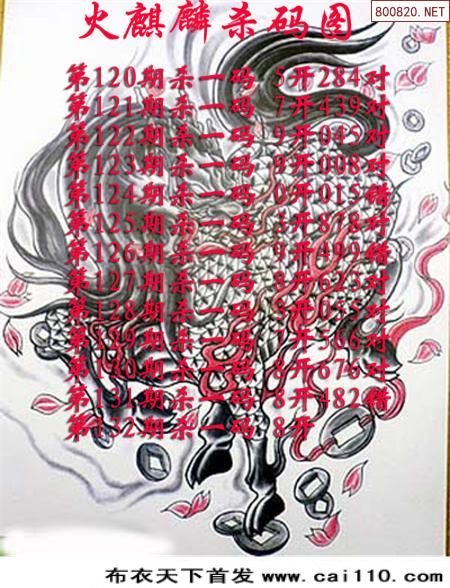 800820.NET
火麒麟杀码图
第120期杀一码 5开284对
第121期杀一码 7开439对
第122期杀一码 9开045对
第123期杀一码 9开008对
第124期杀一码 0开015错
第125期杀一码 3开878对
第126期杀一码 9开499错
第127期杀一码 8开623对
第128期杀一码 开055对
第129期杀一码 7开566对
第130期杀一码 8开676对
第131期杀一码 8开482错
第132期杀一码 8开
布衣天下首发 www.cai110.com